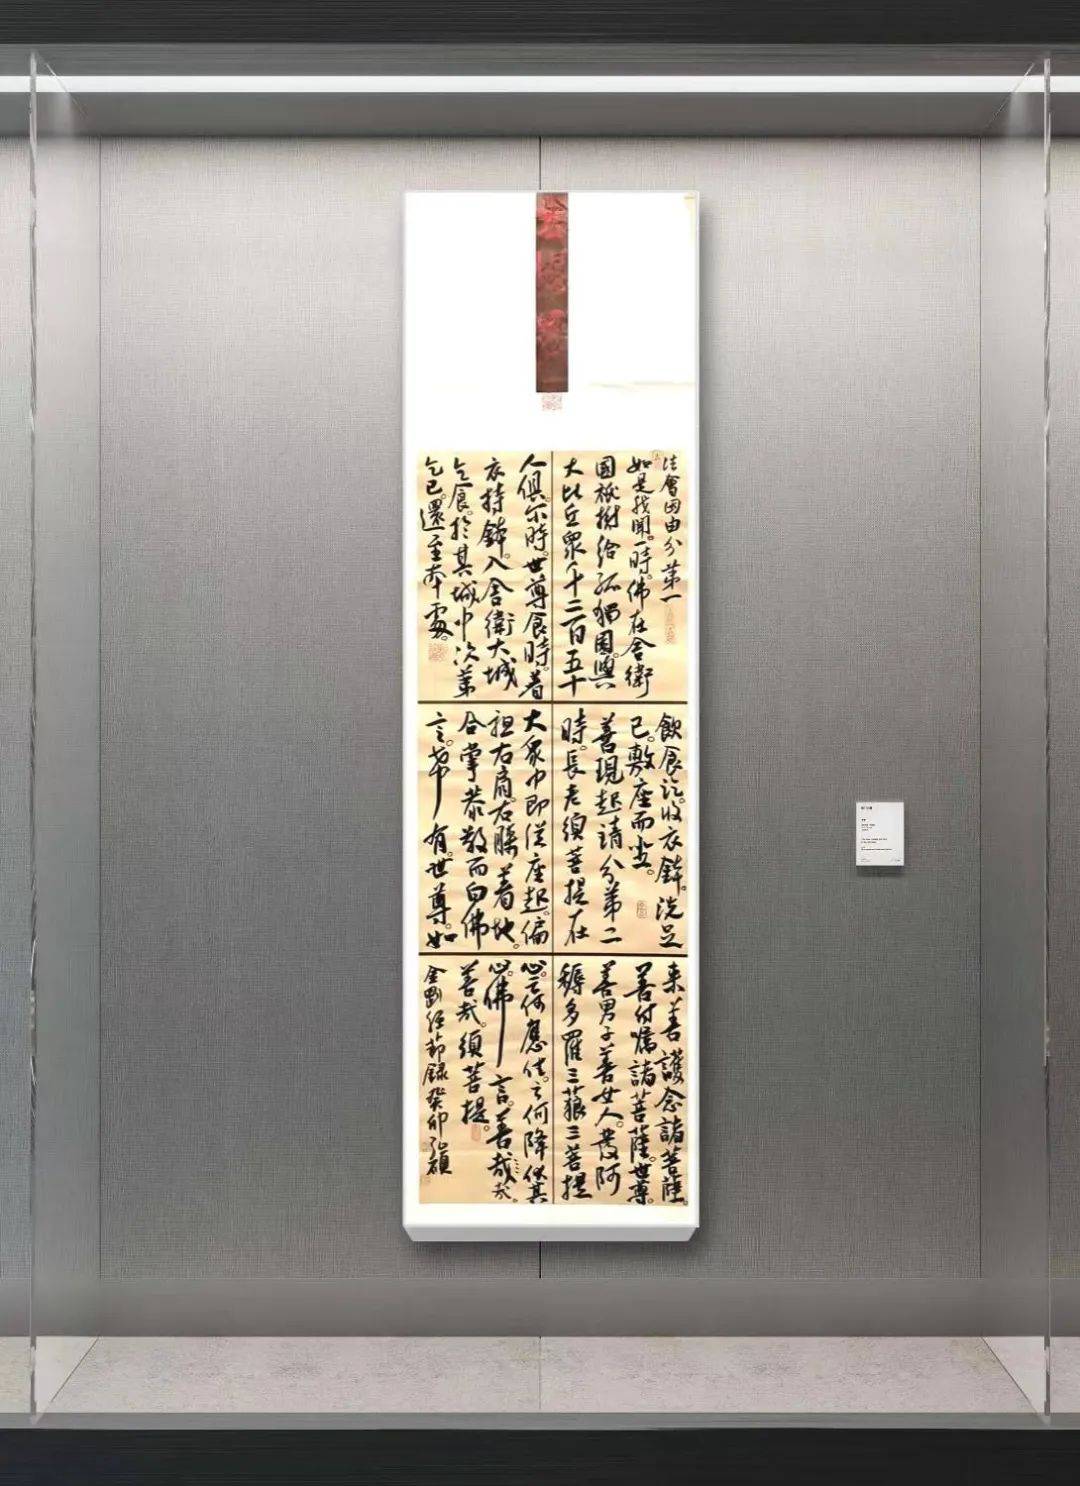 法會因由分第一
如是我聞。一時。佛在舍衛
國祇樹給孤獨園。與
大比丘眾千二百五十
人俱。尔時。世尊食時。着
衣持鉢。入舍衛大城
乞食。於其城中次第
乞已。還至本處。
飲食訖。收衣鉢。洗足
已。敷座而坐。
善現起請分第二
時。長老須菩提在
大眾中即從座起。偏
袒右肩。右膝着地。
合掌恭敬而白佛
言。希有。世尊。如
来善護念諸菩薩。
善付囑諸菩薩。世尊。
善男子善女人。發阿
耨多羅三藐三菩提
心。云何應住。云何降伏其
心。佛言。善哉。
善哉。須菩提。
金剛經節錄癸卯弘碩